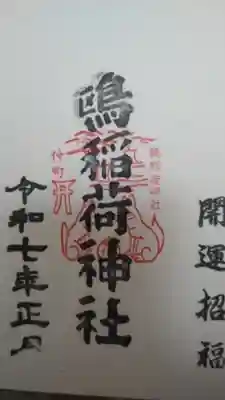 開運招福
鷗稲荷神社
令和七年正月